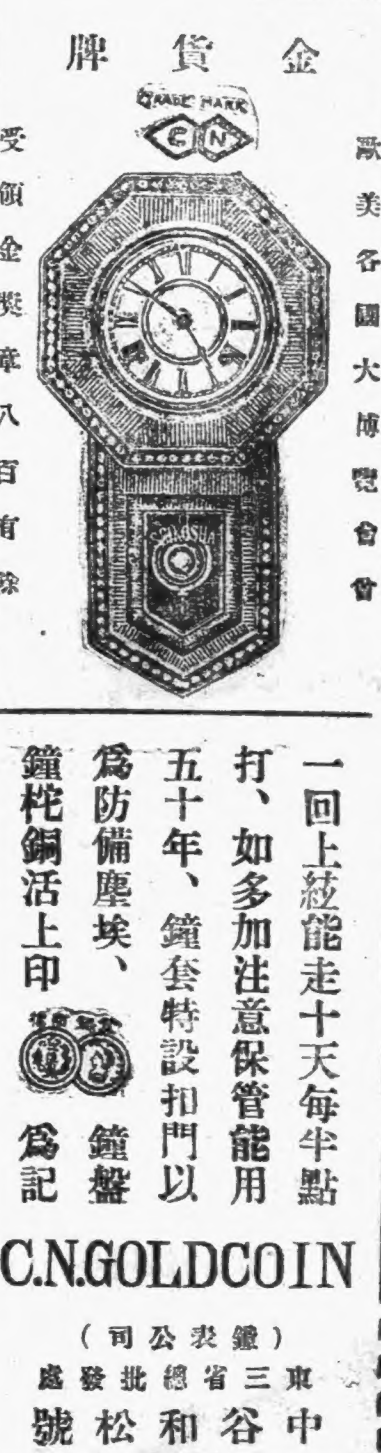 金貨牌
TRADE MARK
C N
歐美各國大博覽會會
受領金獎章八百有餘
SEIKOSHA
一回上絃能走十天每半點
打、如多加注意保管能用
五十年、鐘套特設扣門以
爲防備塵埃、鐘盤
鐘柁銅活上印 爲記
C.N.GOLDCOIN
(鐘表公司)
東三省總批發處
中谷和松號